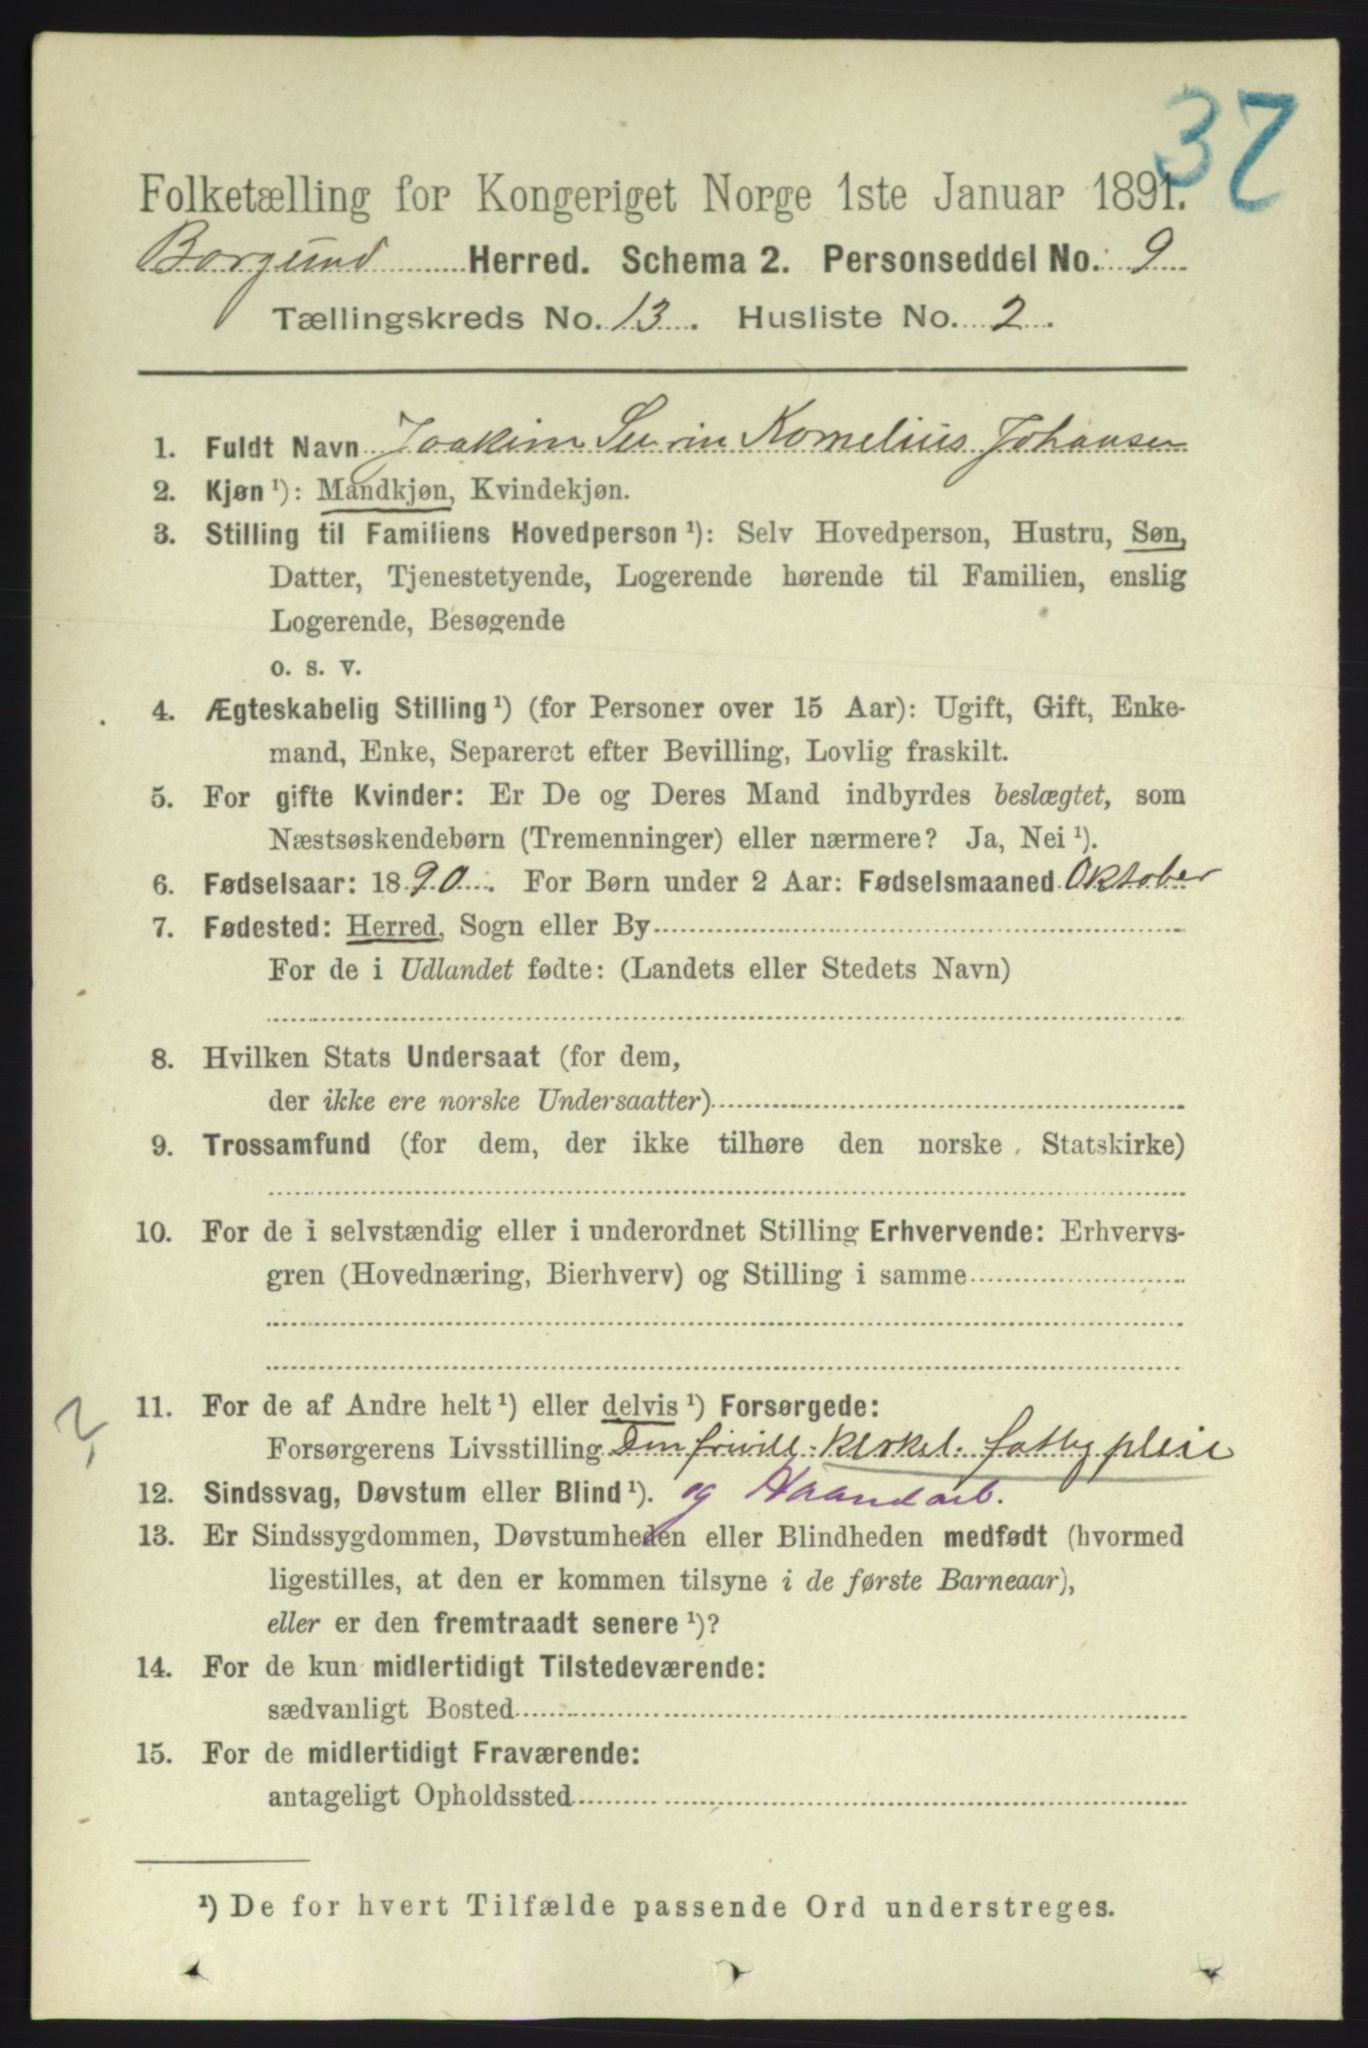 37
Folketælling for Kongeriget Norge 1ste Januar 1891.
Borgund Herred. Schema 2. Personseddel No. 9
Tællingskreds No. 13. Husliste No. 2.
1. Fuldt Navn Joakim Severin Kornelius Johansen
2. Kjøn ¹): Mandkjøn, Kvindekjøn.
3. Stilling til Familiens Hovedperson ¹): Selv Hovedperson, Hustru, Søn,
Datter, Tjenestetyende, Logerende hørende til Familien, enslig
Logerende, Besøgende
o. s. v.
4. Ægteskabelig Stilling ¹) (for Personer over 15 Aar): Ugift, Gift, Enke-
mand, Enke, Separeret efter Bevilling, Lovlig fraskilt.
5. For gifte Kvinder: Er De og Deres Mand indbyrdes beslægtet, som
Næstsøskendebørn (Tremenninger) eller nærmere? Ja, Nei ¹).
6. Fødselsaar: 1890. For Børn under 2 Aar: Fødselsmaaned Oktober
7. Fødested: Herred, Sogn eller By
For de i Udlandet fødte: (Landets eller Stedets Navn)
8. Hvilken Stats Undersaat (for dem,
der ikke ere norske Undersaatter)
9. Trossamfund (for dem, der ikke tilhøre den norske Statskirke)
10. For de i selvstændig eller i underordnet Stilling Erhvervende: Erhvervs-
gren (Hovednæring, Bierhverv) og Stilling i samme
2,
11. For de af Andre helt ¹) eller delvis ¹) Forsørgede:
Forsørgerens Livsstilling Den frivill. kirkel. fattigpleie
12. Sindssvag, Døvstum eller Blind ¹). og Haandarb.
13. Er Sindssygdommen, Døvstumheden eller Blindheden medfødt (hvormed
ligestilles, at den er kommen tilsyne i de første Barneaar),
eller er den fremtraadt senere ¹)?
14. For de kun midlertidigt Tilstedeværende:
sædvanligt Bosted
15. For de midlertidigt Fraværende:
antageligt Opholdssted
¹) De for hvert Tilfælde passende Ord understreges.